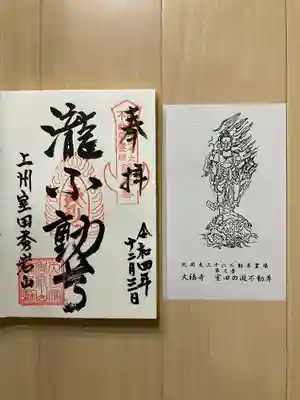 奉拝
瀧不動尊
上州室田
岩山
令和四年
十二月三日
北関東三十六不動尊霊場
大福寺 室田の瀧不動尊